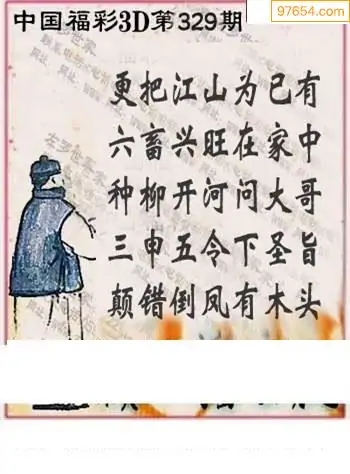 中国福彩3D第329期
97654.com
更把江山为已有
六畜兴旺在家中
种柳开河问大哥
三申五令下圣旨
颠错倒凤有木头